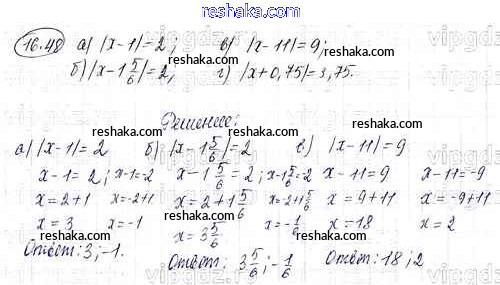 reshaka.com
16.48 а) |x-1|=2; в) |x-11|=9;
б) |x-1 5/6|=2, г) |x+0,75|=3,75.
reshaka.com reshaka.com
Решение:
reshaka.com reshaka.com
а) |x-1|=2 б) |x-1 5/6|=2 в) |x-11|=9
x-1=2; x-1=2 x-1 5/6=2; x-1 5/6=2 x-11=9 x-11=-9
reshaka.com reshaka.com
x=2+1 x=-2+1 x=2+1 5/6 x=-2+1 5/6 x=9+11 x=-9+11
x=3 x=-1 x=3 5/6 x=-1/6 x=18 x=2
reshaka.com reshaka.com
Ответ: 3; -1.
Ответ: 3 5/6; -1/6 Ответ: 18; 2
reshaka.com